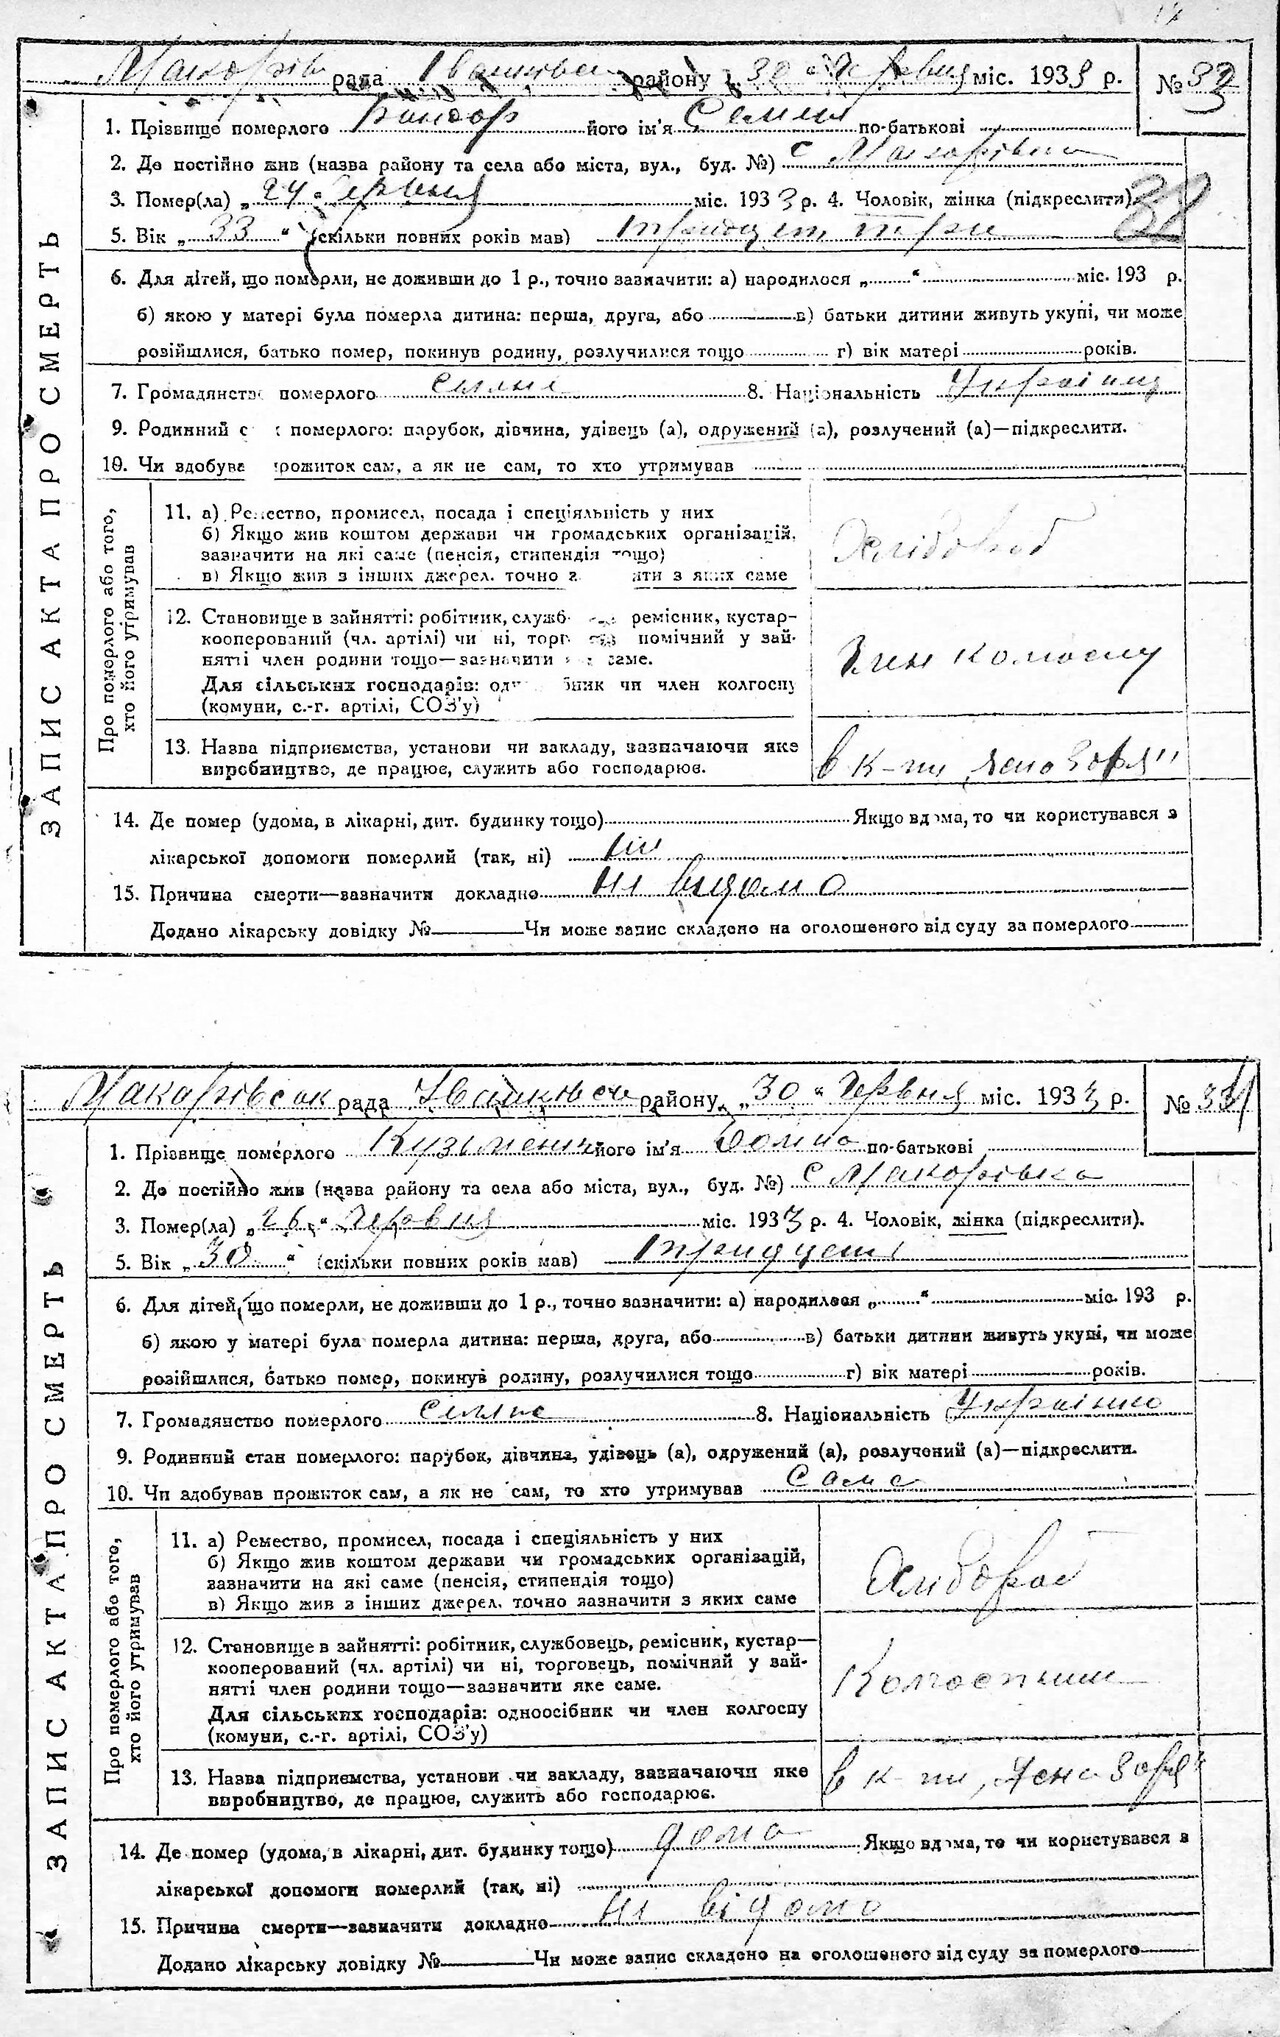 ЗАПИС АКТА ПРО СМЕРТЬ
рада району „30“ Червня міс. 1933 р. № 33
1. Прізвище померлого його ім'я Семен по-батькові
2. Де постійно жив (назва району та села або міста, вул., буд. №) с Макарівка
3. Помер(ла) „24“ Червня міс. 1933 р. 4. Чоловік, жінка (підкреслити).
38
5. Вік „33“ (скільки повних років мав) тридцят три
6. Для дітей, що померли, не доживши до 1 р., точно зазначити: а) народилося „ “ міс. 193 р.
б) якою у матері була померла дитина: перша, друга, або в) батьки дитини живуть укупі, чи може
розійшлися, батько помер, покинув родину, розлучилися тощо г) вік матері років.
7. Громадянство померлого 8. Національність
9. Родинний с померлого: парубок, дівчина, удівець (а), одружений (а), розлучений (а)—підкреслити.
10. Чи здобував прожиток сам, а як не сам, то хто утримував
Про померлого або того, хто його утримував
11. а) Ремество, промисел, посада і спеціяльність у них
б) Якщо жив коштом держави чи громадських організацій,
зазначити на які саме (пенсія, стипендія тощо)
в) Якщо жив з інших джерел, точно з яких саме
Хлібороб
12. Становище в зайнятті: робітник, служб ремісник, кустар-
кооперований (чл. артілі) чи ні, торг помічний у зай-
нятті член родини тощо—зазначити саме.
Для сільських господарів: чи член колгоспу
(комуни, с.-г. артілі, СОЗ'у)
Член колгоспу
13. Назва підприємства, установи чи закладу, зазначаючи яке
виробництво, де працює, служить або господарює.
в к-пи „Ясна Зоря"
14. Де помер (удома, в лікарні, дит. будинку тощо) Якщо вдома, то чи користувався з
лікарської допомоги померлий (так, ні) ні
15. Причина смерти—зазначити докладно не відомо
Додано лікарську довідку № Чи може запис складено на оголошеного від суду за померлого
ЗАПИС АКТА ПРО СМЕРТЬ
Макарівськ рада району „30“ Червня міс. 1933 р. № 34
1. Прізвище померлого його ім'я по-батькові
2. Де постійно жив (назва району та села або міста, вул., буд. №) с Макарівка
3. Помер(ла) „26“ Червня міс. 1933 р. 4. Чоловік, жінка (підкреслити).
5. Вік „30“ (скільки повних років мав) тридцять
6. Для дітей, що померли, не доживши до 1 р., точно зазначити: а) народилося „ “ міс. 193 р.
б) якою у матері була померла дитина: перша, друга, або в) батьки дитини живуть укупі, чи може
розійшлися, батько помер, покинув родину, розлучилися тощо г) вік матері років.
7. Громадянство померлого 8. Національність
9. Родинний стан померлого: парубок, дівчина, удівець (а), одружений (а), розлучений (а)—підкреслити.
10. Чи здобував прожиток сам, а як не сам, то хто утримував сама
Про померлого або того, хто його утримував
11. а) Ремество, промисел, посада і спеціяльність у них
б) Якщо жив коштом держави чи громадських організацій,
зазначити на які саме (пенсія, стипендія тощо)
в) Якщо жив з інших джерел, точно зазначити з яких саме
Хлібороб
12. Становище в зайнятті: робітник, службовець, ремісник, кустар—
кооперований (чл. артілі) чи ні, торговець, помічний у зай-
нятті член родини тощо—зазначити яке саме.
Для сільських господарів: одноосібник чи член колгоспу
(комуни, с.-г. артілі, СОЗ'у)
13. Назва підприємства, установи чи закладу, зазначаючи яке
виробництво, де працює, служить або господарює.
в к-пи „Ясна Зоря"
14. Де помер (удома, в лікарні, дит. будинку тощо) дома Якщо вдома, то чи користувався з
лікарської допомоги померлий (так, ні)
15. Причина смерти—зазначити докладно не відомо
Додано лікарську довідку № Чи може запис складено на оголошеного від суду за померлого